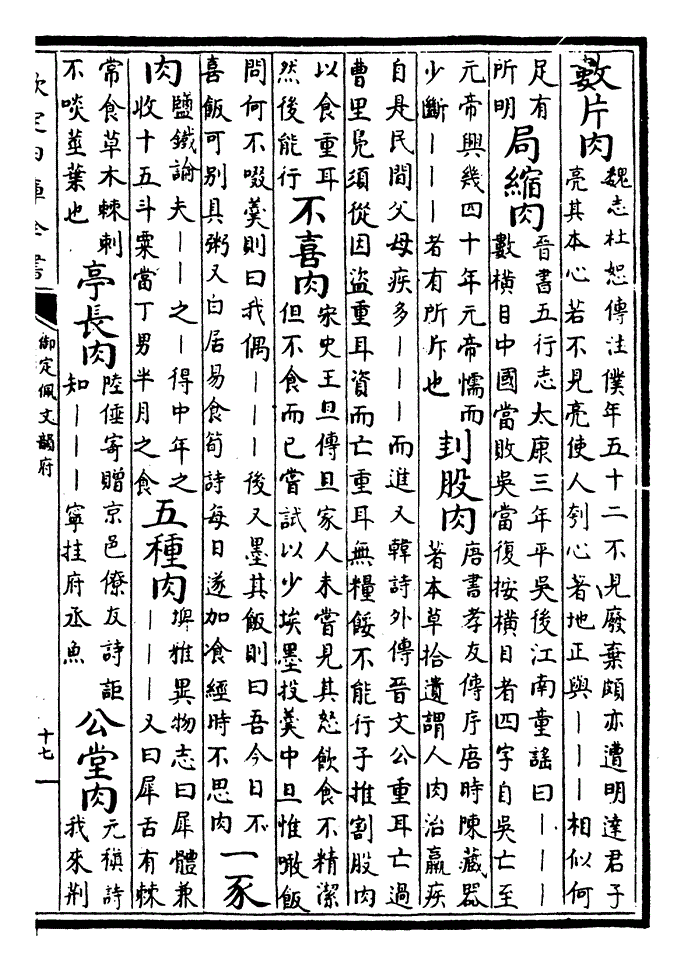 數片肉
魏志杜恕傳注僕年五十二不見廢棄頗亦遭明達君子
亮其本心若不見亮使人刳心著地正與｜｜｜相似何
足有
所明
局縮肉
晉書五行志太康三年平吳後江南童謠曰｜｜｜
數橫目中國當敗吳當復按橫目者四字自吳亡至
元帝興幾四十年元帝懦而
少斷｜｜｜者有所斥也
刲股肉
唐書孝友傳序唐時陳藏器
著本草拾遺謂人肉治羸疾
自是民間父母疾多｜｜｜而進又韓詩外傳晉文公重耳亡過
曹里鳧須從因盜重耳資而亡重耳無糧餒不能行子推割股肉
以食重耳
然後能行
不喜肉
宋史王旦傳旦家人未嘗見其怒飲食不精潔
但不食而已嘗試以少埃墨投羹中旦惟噉飯
問何不啜羹則曰我偶｜｜｜後又墨其飯則曰吾今日不
喜飯可別具粥又白居易食筍詩每日遂加飡經時不思肉
一豕
肉
鹽鐵論夫｜｜之｜得中年之
收十五斗粟當丁男半月之食
五種肉
埤雅異物志曰犀體兼
｜｜｜又曰犀舌有棘
常食草木棘刺
不啖莖葉也
亭長肉
陸倕寄贈京邑僚友詩詎
知｜｜｜寧挂府丞魚
公堂肉
元稹詩
我來荆
欽定四庫全書
御定佩文韻府
十七